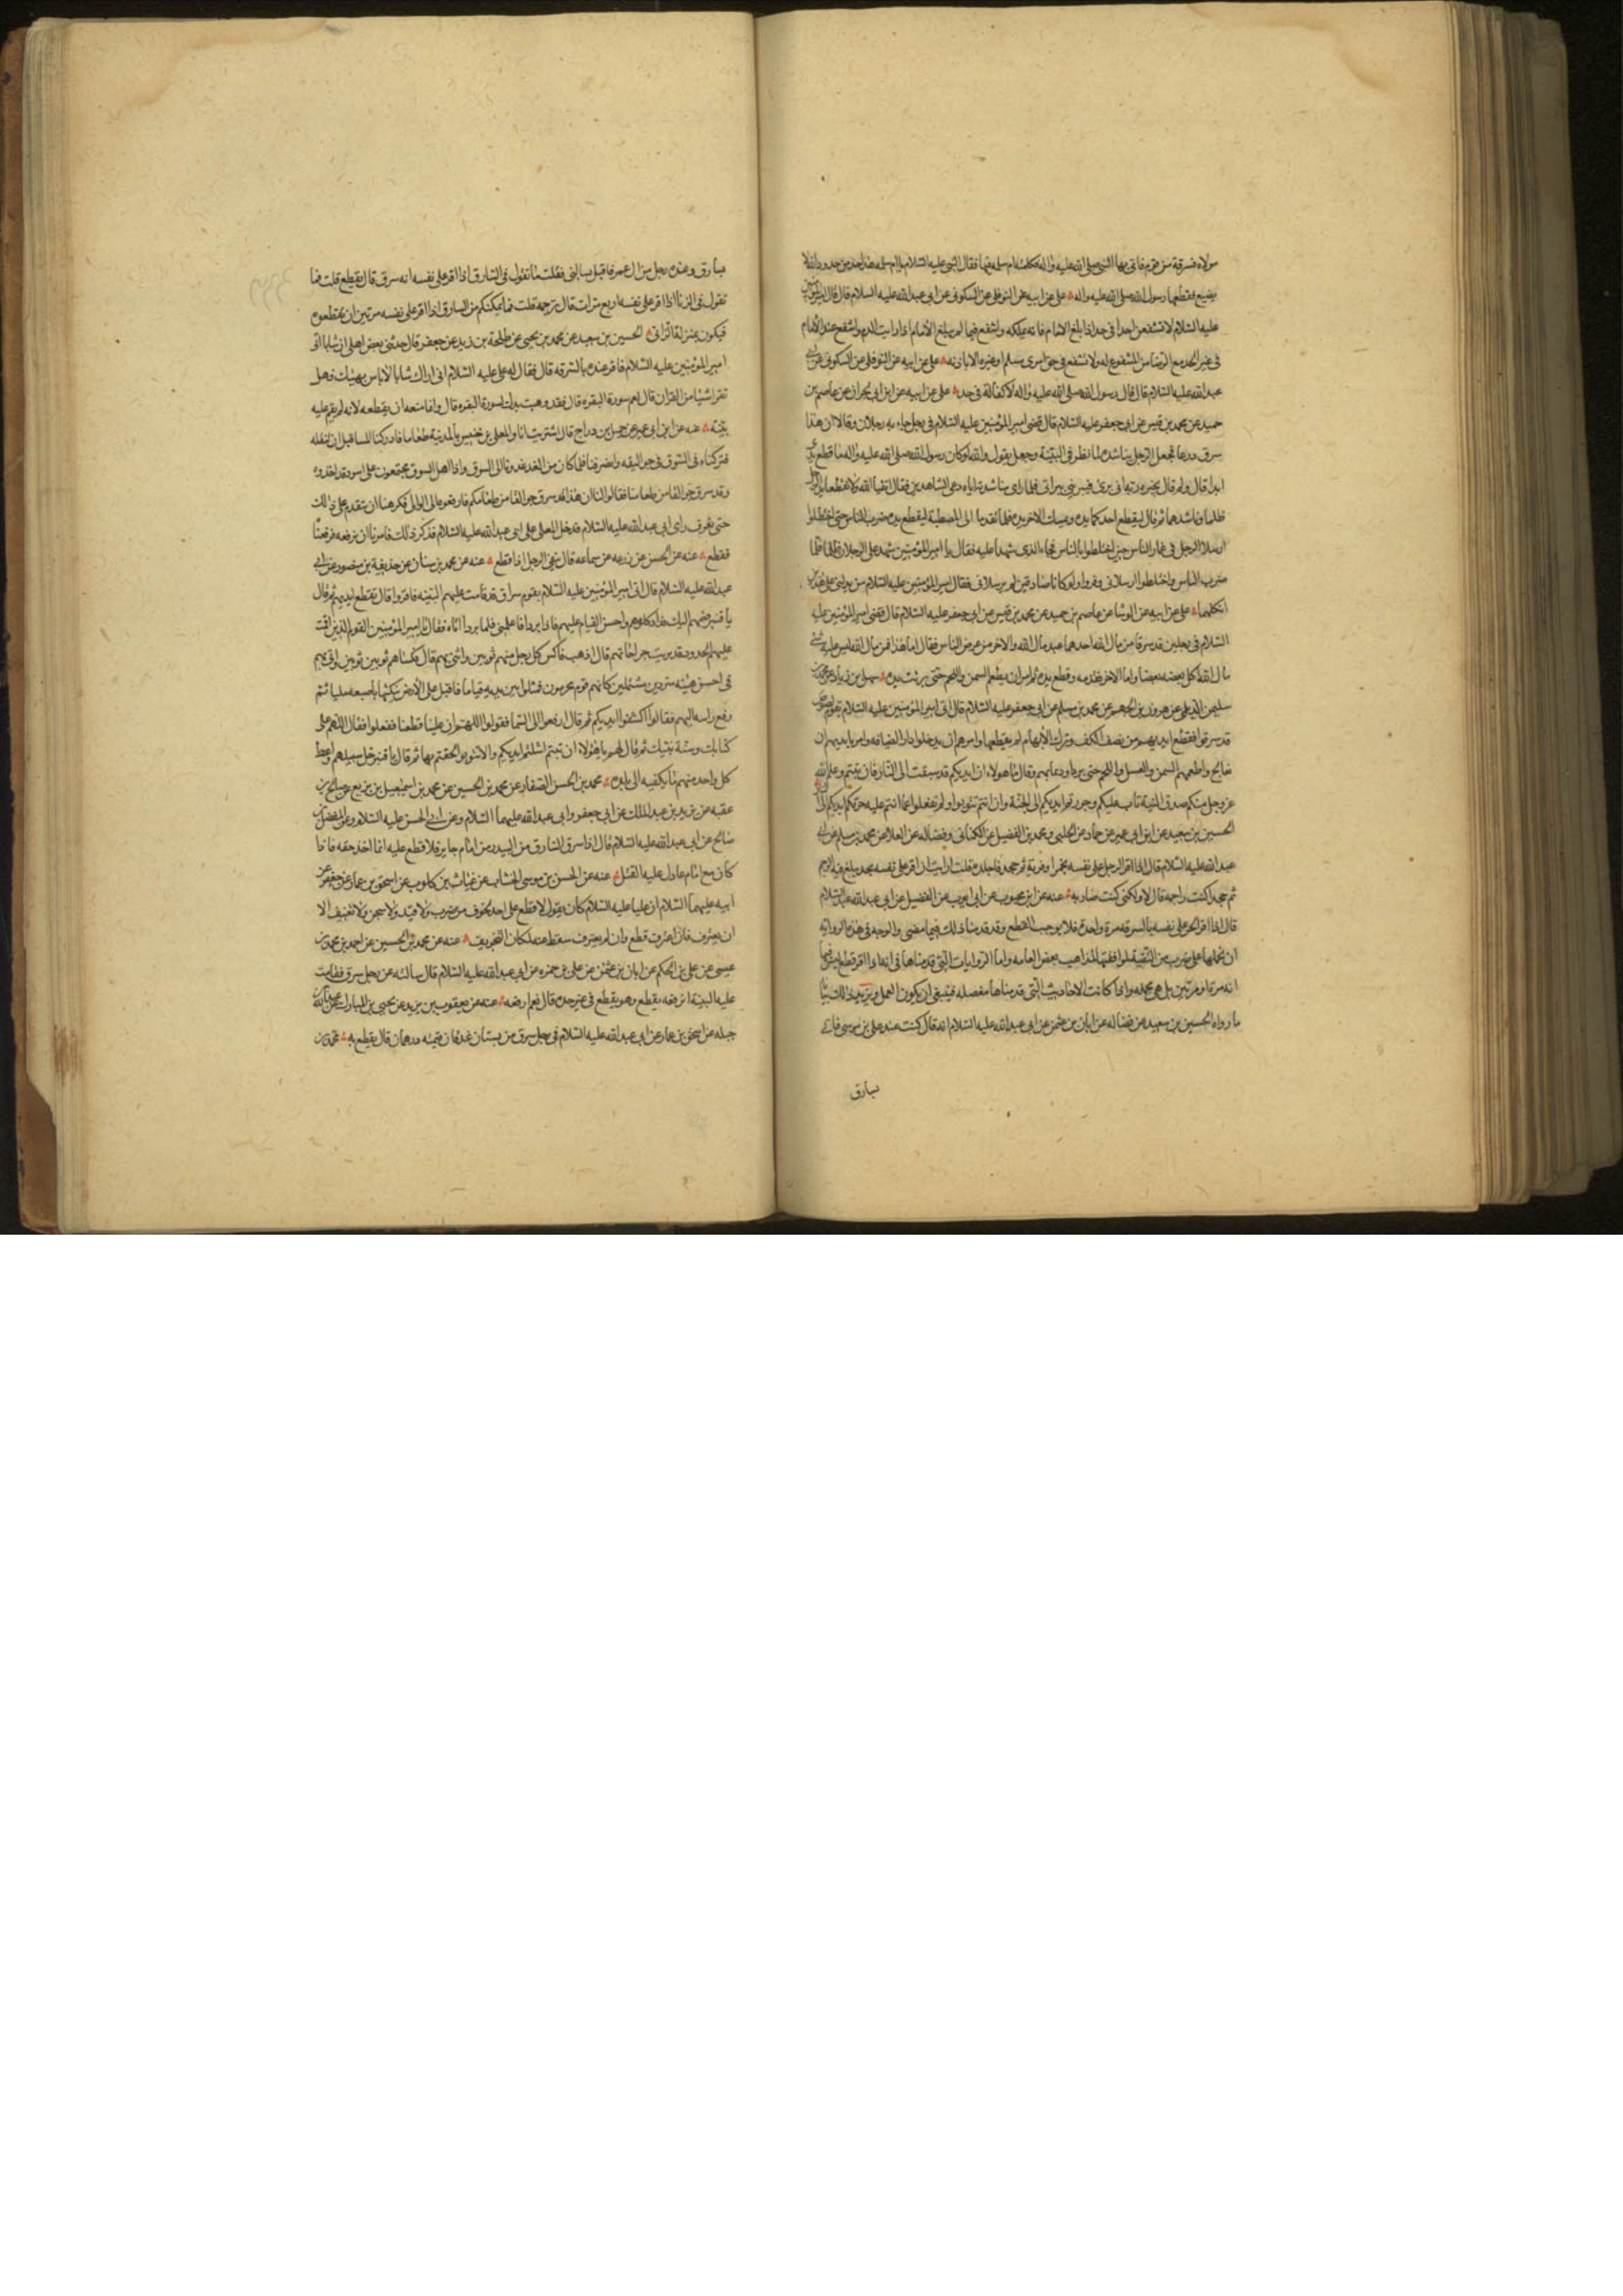 مولاه فسرقة من قوم فاتى بها النبى صلى الله عليه واله فكلمته ام سلمه فيها فقال النبى عليه السلام يا ام سلمه هذا حد من حدود الله لا
يضيع فقطعها رسول الله صلى الله عليه واله علي عن ابيه عن النوفلى عن السكونى عن ابى عبدالله عليه السلام قال قال امير المؤمنين
عليه السلام لا تشفعن احدا فى حد اذا بلغ الامام فانه يملكه واشفع فيما لم يبلغ الامام اذا رايت الندم واشفع عند الامام
فى غير الحد مع الرضا من المشفوع له ولا تشفع فى حق امرئ مسلم او غيره الا باذنه على عن ابيه عن النوفلى عن السكونى عن ابى
عبدالله عليه السلام قال قال رسول الله صلى الله عليه واله لا كفالة فى حد على عن ابيه عن ابن ابى نجران عن عاصم بن
حميد عن محمد بن قيس عن ابى جعفر عليه السلام قال قضى امير المؤمنين عليه السلام فى رجل جاء به رجلان وقالا ان هذا
سرق درعا فجعل الرجل يناشده لما نظر فى البينة وجعل يقول والله لو كان رسول الله صلى الله عليه واله ما قطع يدى
ابدا قال ولم قال يخبره ربه انى برئ فيبرينى ببرائتى فلما راى مناشدته اياه دعى الشاهدين فقال اتقيا الله ولا تقطعا يد الرجل
ظلما وناشدهما ثم قال ليقطع احدكما يده ويمسك الاخر يده فلما تقدما الى المصطبة ليقطع يده ضرب الناس حتى اختلطوا
ارسلا الرجل فى غمار الناس حين اختلطوا بالناس فجاء الذى شهدا عليه فقال يا امير المؤمنين شهد على الرجلان ظلما فلما
ضرب الناس واختلطوا ارسلانى وفروا ولو كانا صادقين لم يرسلانى فقال امير المؤمنين عليه السلام من يدلنى على هذين
انكلهما على عن ابيه عن الوشا عن عاصم بن حميد عن محمد بن قيس عن ابى جعفر عليه السلام قال قضى امير المؤمنين عليه
السلام فى رجلين قد سرقا من مال الله احدهما عبد مال الله والاخر من عرض الناس فقال اما هذا فمن مال الله ليس عليه شئ
مال الله اكل بعضه بعضا واما الاخر فقدمه وقطع يده ثم امر ان يطعم السمن واللحم حتى برئت يده سهل بن زياد عن محمد بن
سليمن الديلمى عن هرون بن الجهم عن محمد بن مسلم عن ابى جعفر عليه السلام قال اتى امير المؤمنين عليه السلام بقوم لصوص
قد سرقوا فقطع ايديهم من نصف الكف وترك الابهام لم يقطعها وامرهم ان يدخلوا دار الضيافه وامر بايديهم ان
تعالج واطعمهم السمن والعسل واللحم حتى برءوا ودعا بهم وقال يا هولاء ان ايديكم قد سبقت الى النار فان تبتم وعلم الله
عز وجل منكم صدق النية تاب عليكم وجررتم ايديكم الى الجنة وان انتم لم تتوبوا ولم تقلعوا عما انتم عليه جرتكم ايديكم الى النار
الحسين بن سعيد عن ابن ابى عمير عن حماد عن الحلبى ومحمد بن الفضيل عن الكنانى وفضاله عن العلا عن محمد بن مسلم عن ابى
عبدالله عليه السلام قال اذا اقر الرجل على نفسه بخمر او فرية ثم جحد فاجلده قلت ارايت ان اقر على نفسه بحد يبلغ فيه الرجم
ثم جحد اكنت راجمه قال لا ولكنى كنت ضاربه عنه عن ابن محبوب عن ابى ايوب عن الفضيل عن ابى عبد الله عليه السلام
قال اذا اقر الحر على نفسه بالسرقه مرة واحدة فلا يوجب القطع وقد قدمنا ذلك فيما مضى والوجه فى هذه الرواية
ان نحملها على ضرب من التقية لموافقتها لمذاهب بعض العامه واما الروايات التى قدمناها فى انه اذا اقر قطع ليس فيها
انه مرة او مرتين بل هى مجمله واذا كانت الاحاديث التى قدمناها مفصله فينبغى ان يكون العمل ويزيد ذلك بيانا
ما رواه الحسين بن سعيد عن فضاله عن ابان بن عثمن عن ابى عبدالله عليه السلام انه قال كنت عند عيسى بن موسى فاتى
بسارق
بسارق وعنده رجل من ال عمر فاقبل يسالنى فقلت ما تقول فى السارق اذا اقر على نفسه انه سرق قال يقطع قلت فما
تقول فى الزنا اذا اقر على نفسه اربع مرات قال نرجمه قلت فما يمنعكم من السارق اذا اقر على نفسه مرتين ان تقطعوه
فيكون بمنزلة الزانى الحسين بن سعيد عن محمد بن يحيى عن طلحة بن زيد عن جعفر قال حدثنى بعض اهلى ان شابا اتى
امير المؤمنين عليه السلام فاقر عنده بالسرقه قال فقال له على عليه السلام انى اراك شابا لا باس بهيئتك فهل
تقرا شيئا من القران قال نعم سورة البقره قال فقد وهبت يدك لسورة البقره قال وانما منعه ان يقطعه لانه لم يقم عليه
بينة عنه عن ابن ابى عمير عن جميل بن دراج قال اشتريت انا والمعلى بن خنيس بالمدينة طعاما فادركنا المسا قبل ان ننقله
فتركناه فى السوق فى جواليقه وانصرفنا فلما كان من الغد غدونا الى السوق واذا اهل السوق مجتمعون على اسود قد اخذوه
وقد سرق جوالقا من طعامنا فقالوا لنا ان هذا قد سرق جوالقا من طعامكم فارفعوه الى الوالى فكرهنا ان نتقدم على ذلك
حتى نعرف راى ابى عبدالله عليه السلام فدخل المعلى على ابى عبد الله عليه السلام فذكر ذلك فامرنا ان نرفعه فرفعناه
فقطع عنه عن الحسن عن زرعه عن سماعه قال ينفى الرجل اذا قطع عنه عن محمد بن سنان عن حذيفة بن منصور عن ابى
عبدالله عليه السلام قال اتى امير المؤمنين عليه السلام بقوم سراق قد قامت عليهم البينه فاقروا قال فقطع ايديهم ثم قال
يا قنبر ضمهم اليك فداو كلومهم واحسن القيام عليهم فاذا برءوا فاعلمنى فلما برءوا اتاه فقال يا امير المؤمنين القوم الذين اقمت
عليهم الحدود قد برئت جراحاتهم قال اذهب فاكس كل رجل منهم ثوبين واتنى بهم قال فكساهم ثوبين ثوبين واتى بهم
فى احسن هيئه متردين مشتملين كانهم قوم محرمون فمثلوا بين يديه قياما فاقبل على الارض ينكتها باصبعه مليا ثم
رفع راسه اليهم فقال اكشفوا ايديكم ثم قال ارفعوا الى السما فقولوا اللهم ان عليا قطعنا ففعلوا فقال اللهم على
كتابك وسنة نبيك ثم قال لهم يا هؤلاء ان تبتم استلمتم ايديكم والا تتوبوا الحقتم بها ثم قال يا قنبر خل سبيلهم واعط
كل واحد منهم ما يكفيه الى بلده محمد بن الحسن الصفار عن محمد بن الحسين عن محمد بن اسمعيل بن بزيع عن صالح بن
عقبه عن يزيد بن عبد الملك عن ابى جعفر وابى عبدالله عليهما السلام وعن ابى الحسن عليه السلام وعن المفضل بن
صالح عن ابى عبدالله عليه السلام قال اذا سرق السارق من البيدر من امام جاير فلا قطع عليه انما اخذ حقه فاذا
كان مع امام عادل عليه القتل عنه عن الحسن بن موسى الخشاب عن غياث بن كلوب عن اسحق بن عمار عن جعفر عن
ابيه عليهما السلام ان عليا عليه السلام كان يقول لا قطع على احد تخوف من ضرب ولا قيد ولا سجن ولا تعنيف الا
ان يعترف فان اعترف قطع وان لم يعترف سقط عنه لمكان التخويف عنه عن محمد بن الحسين عن احمد بن محمد بن
عيسى عن على بن الحكم عن ابان بن عثمن عن على بن حمزه عن ابى عبدالله عليه السلام قال سالته عن رجل سرق فقامت
عليه البينة انرفعه يقطع وهو يقطع فى غير حده قال نعم ارفعه عنه عن يعقوب بن يزيد عن يحيى بن المبارك عن عبد الله
جبله عن اسحق بن عمار عن ابى عبدالله عليه السلام فى رجل سرق من بستان عذقا قيمته درهمان قال يقطع به محمد بن